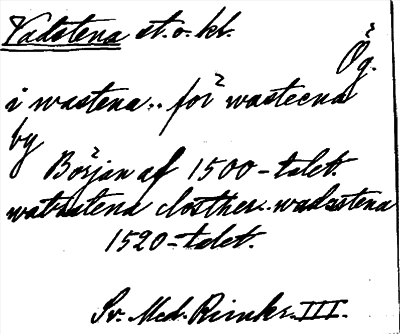 Vadstena st. o. kl.
Ög.
i wastena .. for wasteena
by
Början af 1500-talet.
watzstena closther .. wadastena
1520-talet.
Sv. Med. Rimkr. III.